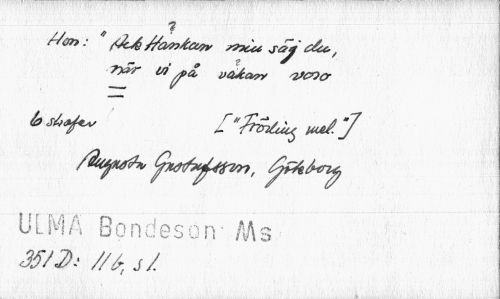 ?
Hon: "Ack Hånkan min säj du,
när vi på våkan voro
6 strofer ["Fröding mel."]
Augusta Gustafsson, Göteborg
ULMA Bondeson Ms
351 D: 11 b, s 1.